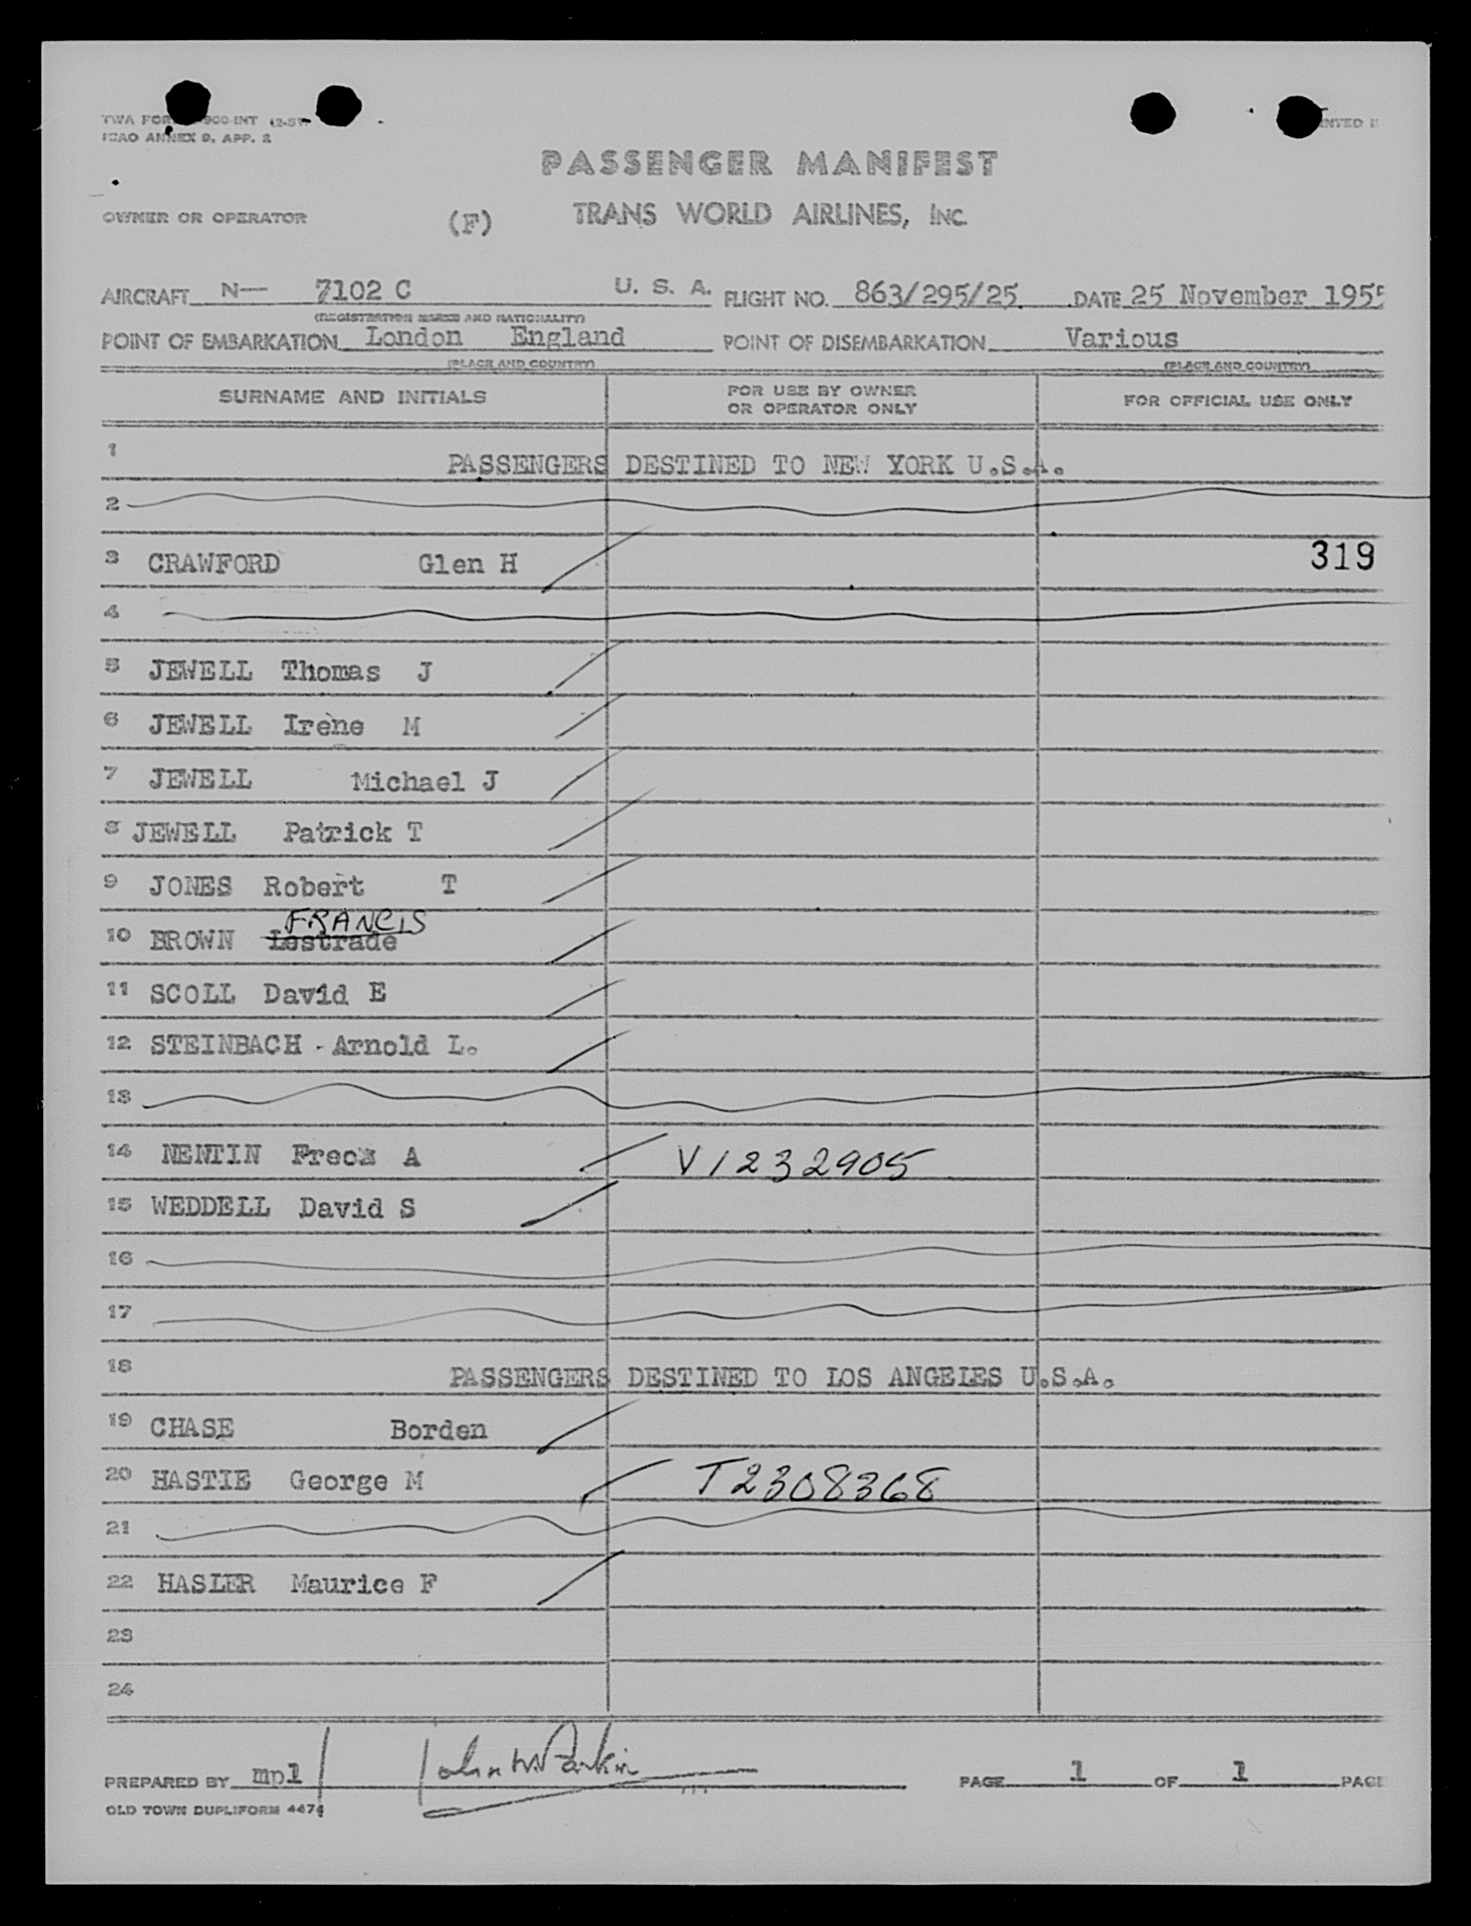 TWA FOR 900-INT (2-5
ICAO ANNEX 9, APP. 2
PASSENGER MANIFEST
OWNER OR OPERATOR (F) TRANS WORLD AIRLINES, INC.
AIRCRAFT N— 7102 C U. S. A. FLIGHT NO. 863/295/25 DATE 25 November 1955
(REGISTRATION MARKS AND NATIONALITY)
POINT OF EMBARKATION London England POINT OF DISEMBARKATION Various
(PLACE AND COUNTRY) (PLACE AND COUNTRY)
SURNAME AND INITIALS FOR USE BY OWNER OR OPERATOR ONLY FOR OFFICIAL USE ONLY
1 PASSENGERS DESTINED TO NEW YORK U.S.A.
2
3 CRAWFORD Glen H 319
4
5 JEWELL Thomas J
6 JEWELL Irene M
7 JEWELL Michael J
8 JEWELL Patrick T
9 JONES Robert T
FRANCIS
10 BROWN Lestrade
11 SCOLL David E
12 STEINBACH - Arnold L.
13
14 NENTIN A V1232905
15 WEDDELL David S
16
17
18 PASSENGERS DESTINED TO LOS ANGELES U.S.A.
19 CHASE Borden
20 HASTIE George M T2308368
21
22 HASLER Maurice F
23
24
PREPARED BY mpl John W Parkin PAGE 1 OF 1 PAGE
OLD TOWN DUPLIFORM 4474